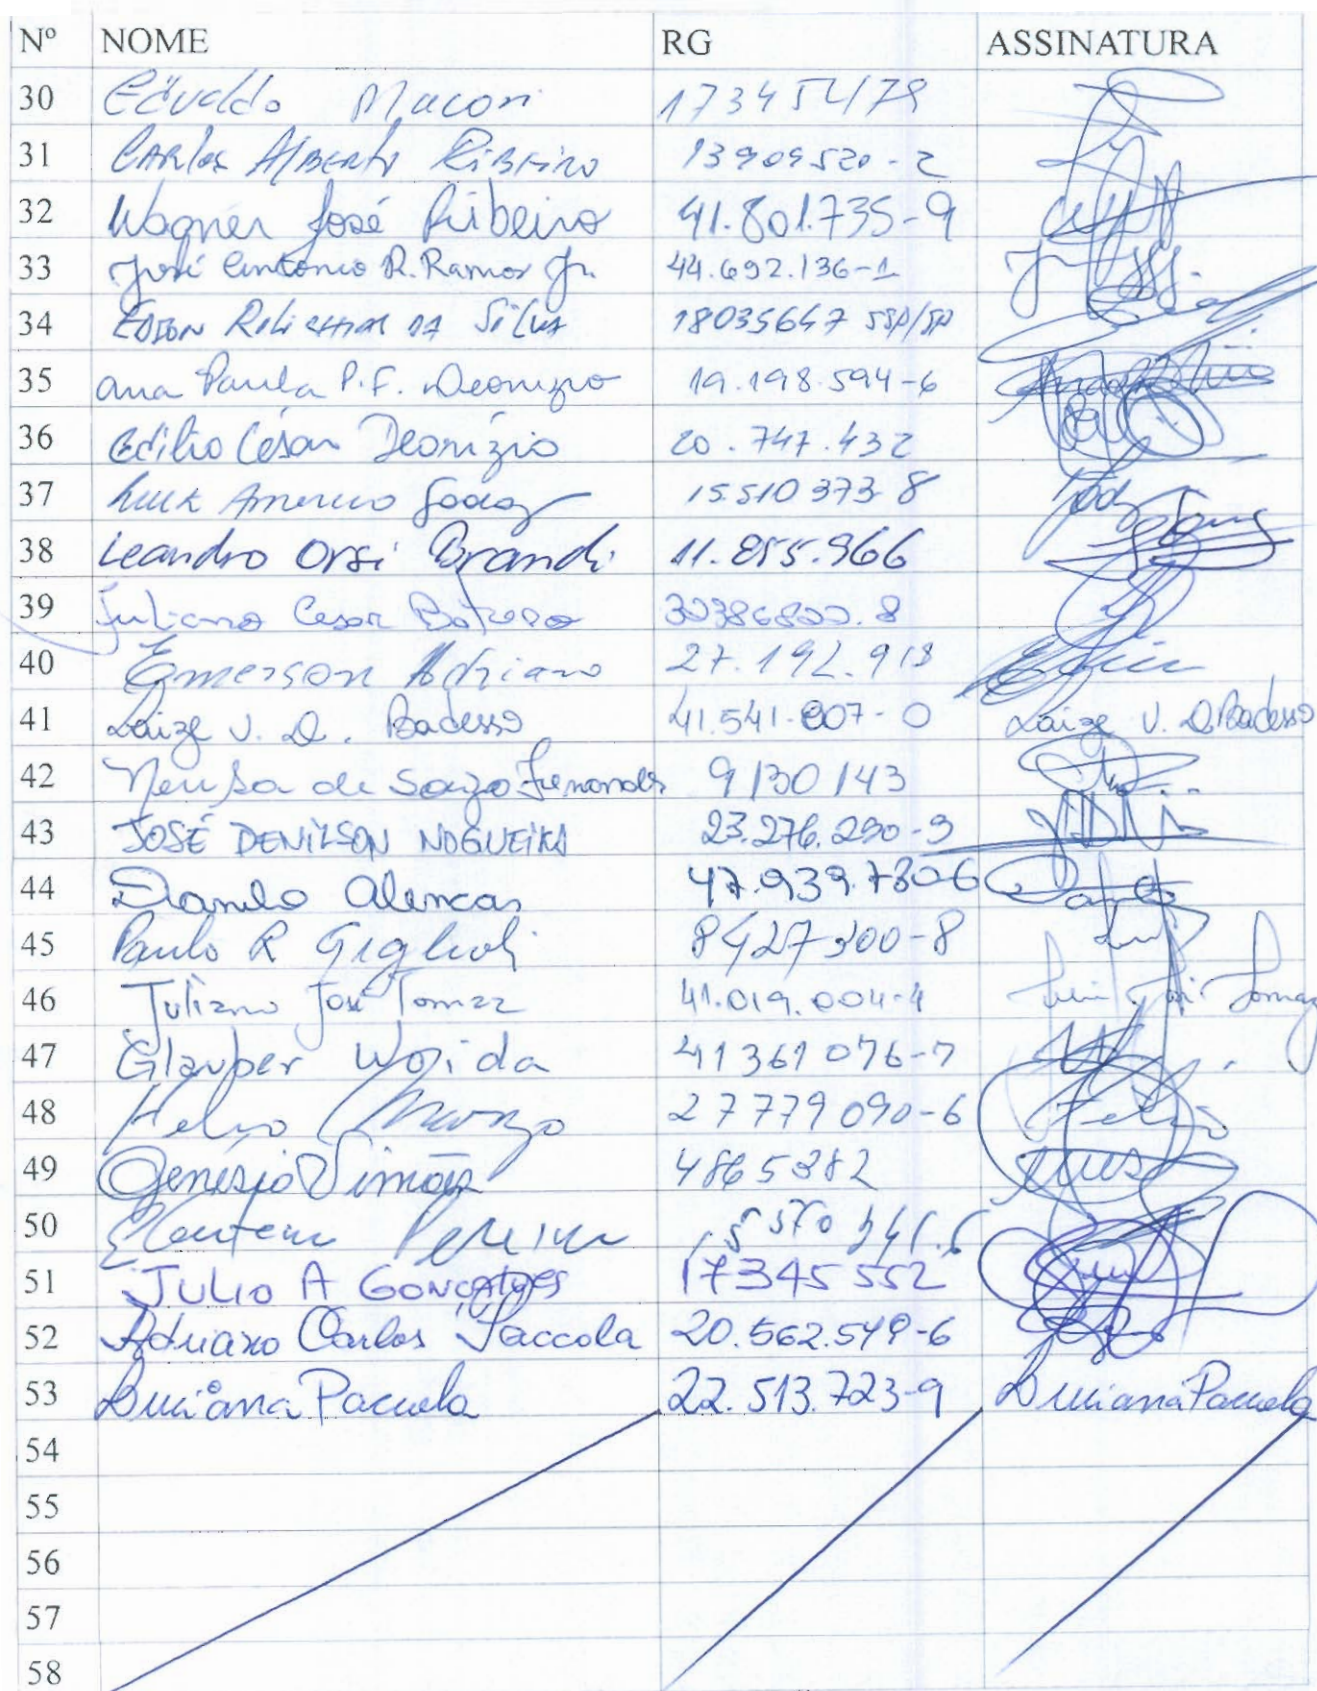 Nº NOME RG ASSINATURA
30 Edvaldo Macori 173454179
31 Carlos Alberto Ribeiro 13909520-2
32 Wagner José Ribeiro 41.801.735-9
33 José Antonio R. Ramos Jr. 44.692.136-1
34 Edson da Silva 18035647 SSP/SP
35 Ana Paula P.F. Deonizio 19.198.594-6
36 Edilio César Deonizio 20.747.432
37 Luiz Americo Godoy 15.510373-8
38 Leandro Orsi Brandi 11.855.966
39 Juliano Cesar
40 Emerson Adriano 27.192.918
41 Laize V. D. Badesso 41.541.807-0 Laize V. D. Badesso
42 Neusa de Souza Fernandes 9130143
43 JOSÉ DENILSON NOGUEIRA 23.276.290-9
44 Danilo Alencar 47.939.730-6
45 Paulo R Giglioli 8427300-8
46 Juliano José Tomaz 41.019.004-4
47 Glauber Wojda 41361076-7
48 Helio 27779090-6
49 Genésio Simões 4865382
50 Pereira
51 JULIO A GONÇALVES 17345552
52 Adriano Carlos Paccola 20.562.549-6
53 Luciana Paccola 22.513.723-9 Luciana Paccola
54
55
56
57
58